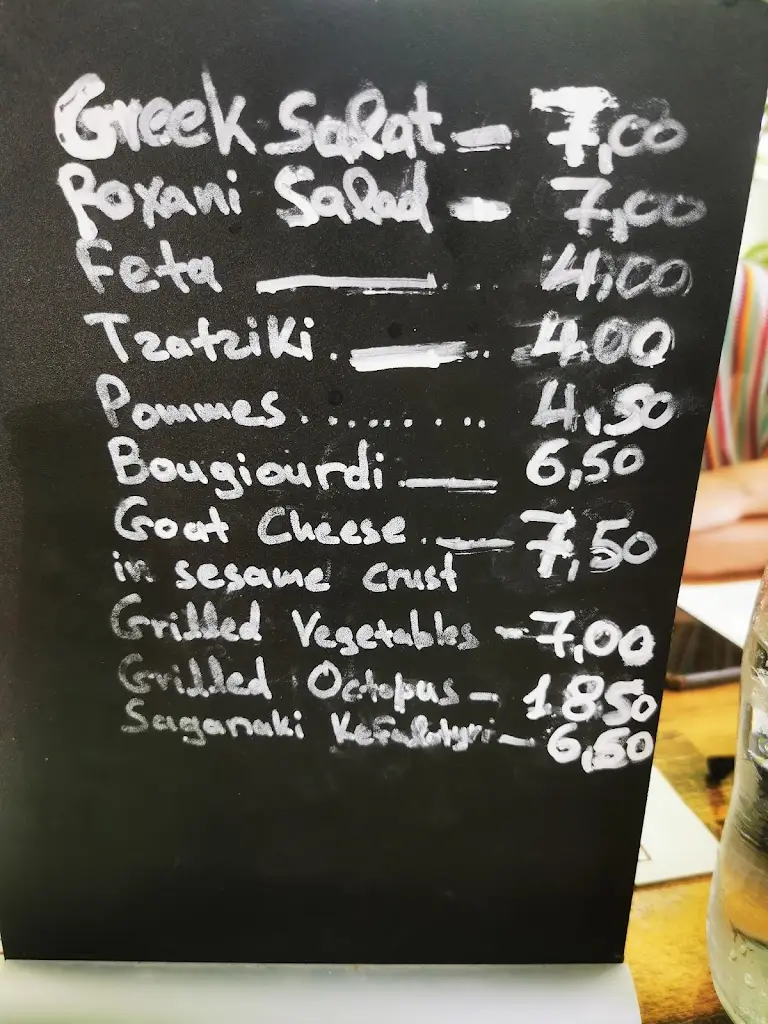 Greek Salat - 7,00
Roxani Salad - 7,00
Feta ——— .. 4,00
Tzatziki . —— .. 4,00
Pommes ........ 4,50
Bougiourdi —— 6,50
Goat Cheese . —— 7,50
in sesame crust
Grilled Vegetables - 7,00
Grilled Octopus - 18,50
Saganaki Kefalotyri - 6,50